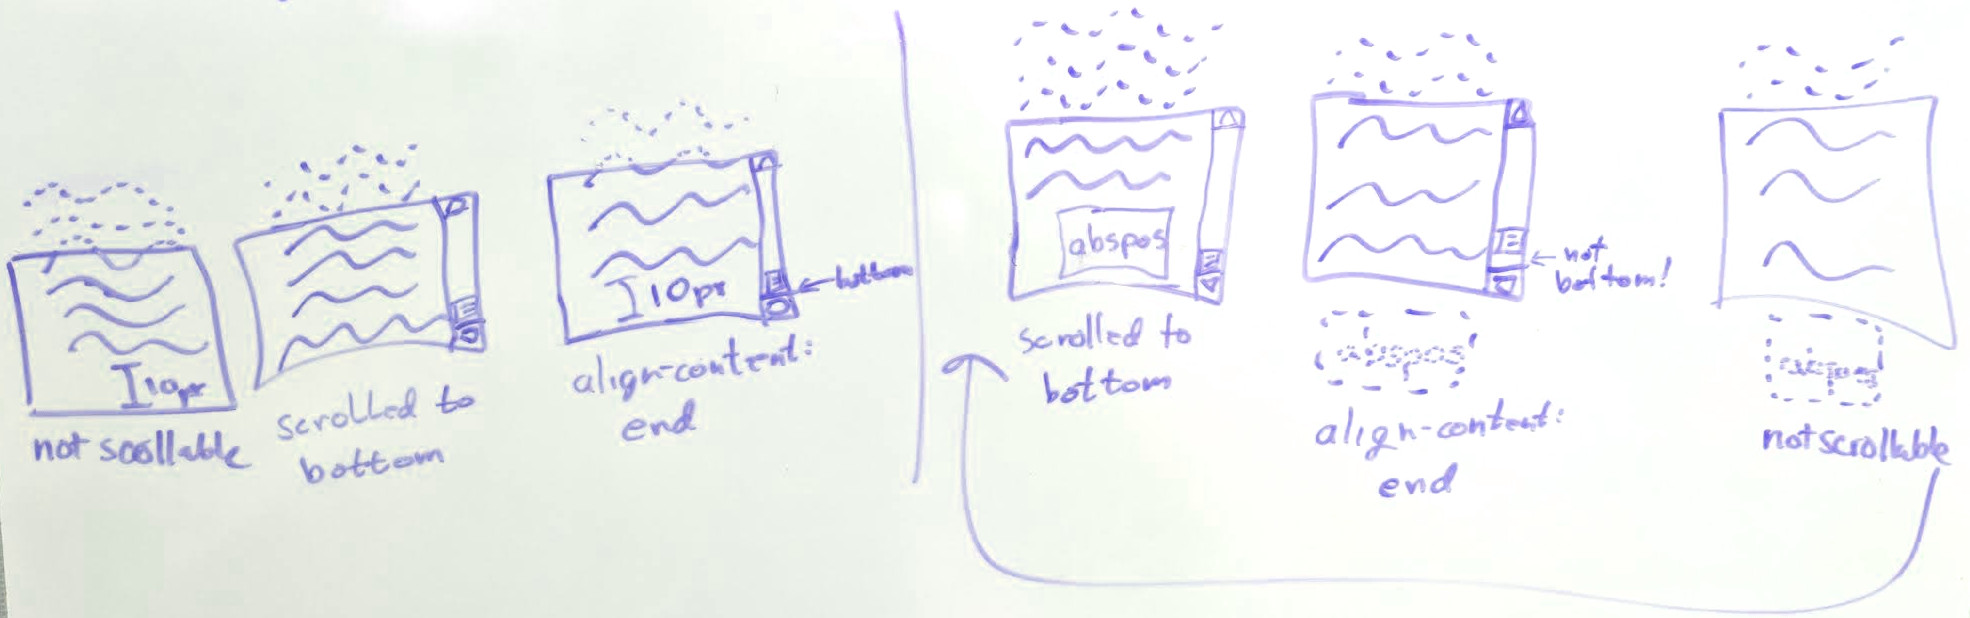 I 10px
not scrollable
scrolled to
bottom
I 10px
← bottom
align-content:
end
abspos
scrolled to
bottom
← not
bottom!
abspos
align-content:
end
abspos
not scrollable